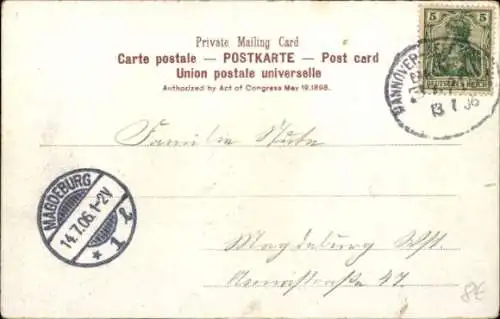 Private Mailing Card
Carte postale — POSTKARTE — Post card
Union postale universelle
Authorized by Act of Congress May 19, 1898.
5 5
DEUTSCHES REICH
HANNOVER
13 7 06
Familie
MAGDEBURG
14.7.06.1-2V
* 1 l
Magdeburg Wst.
Annastraße 47.
8€